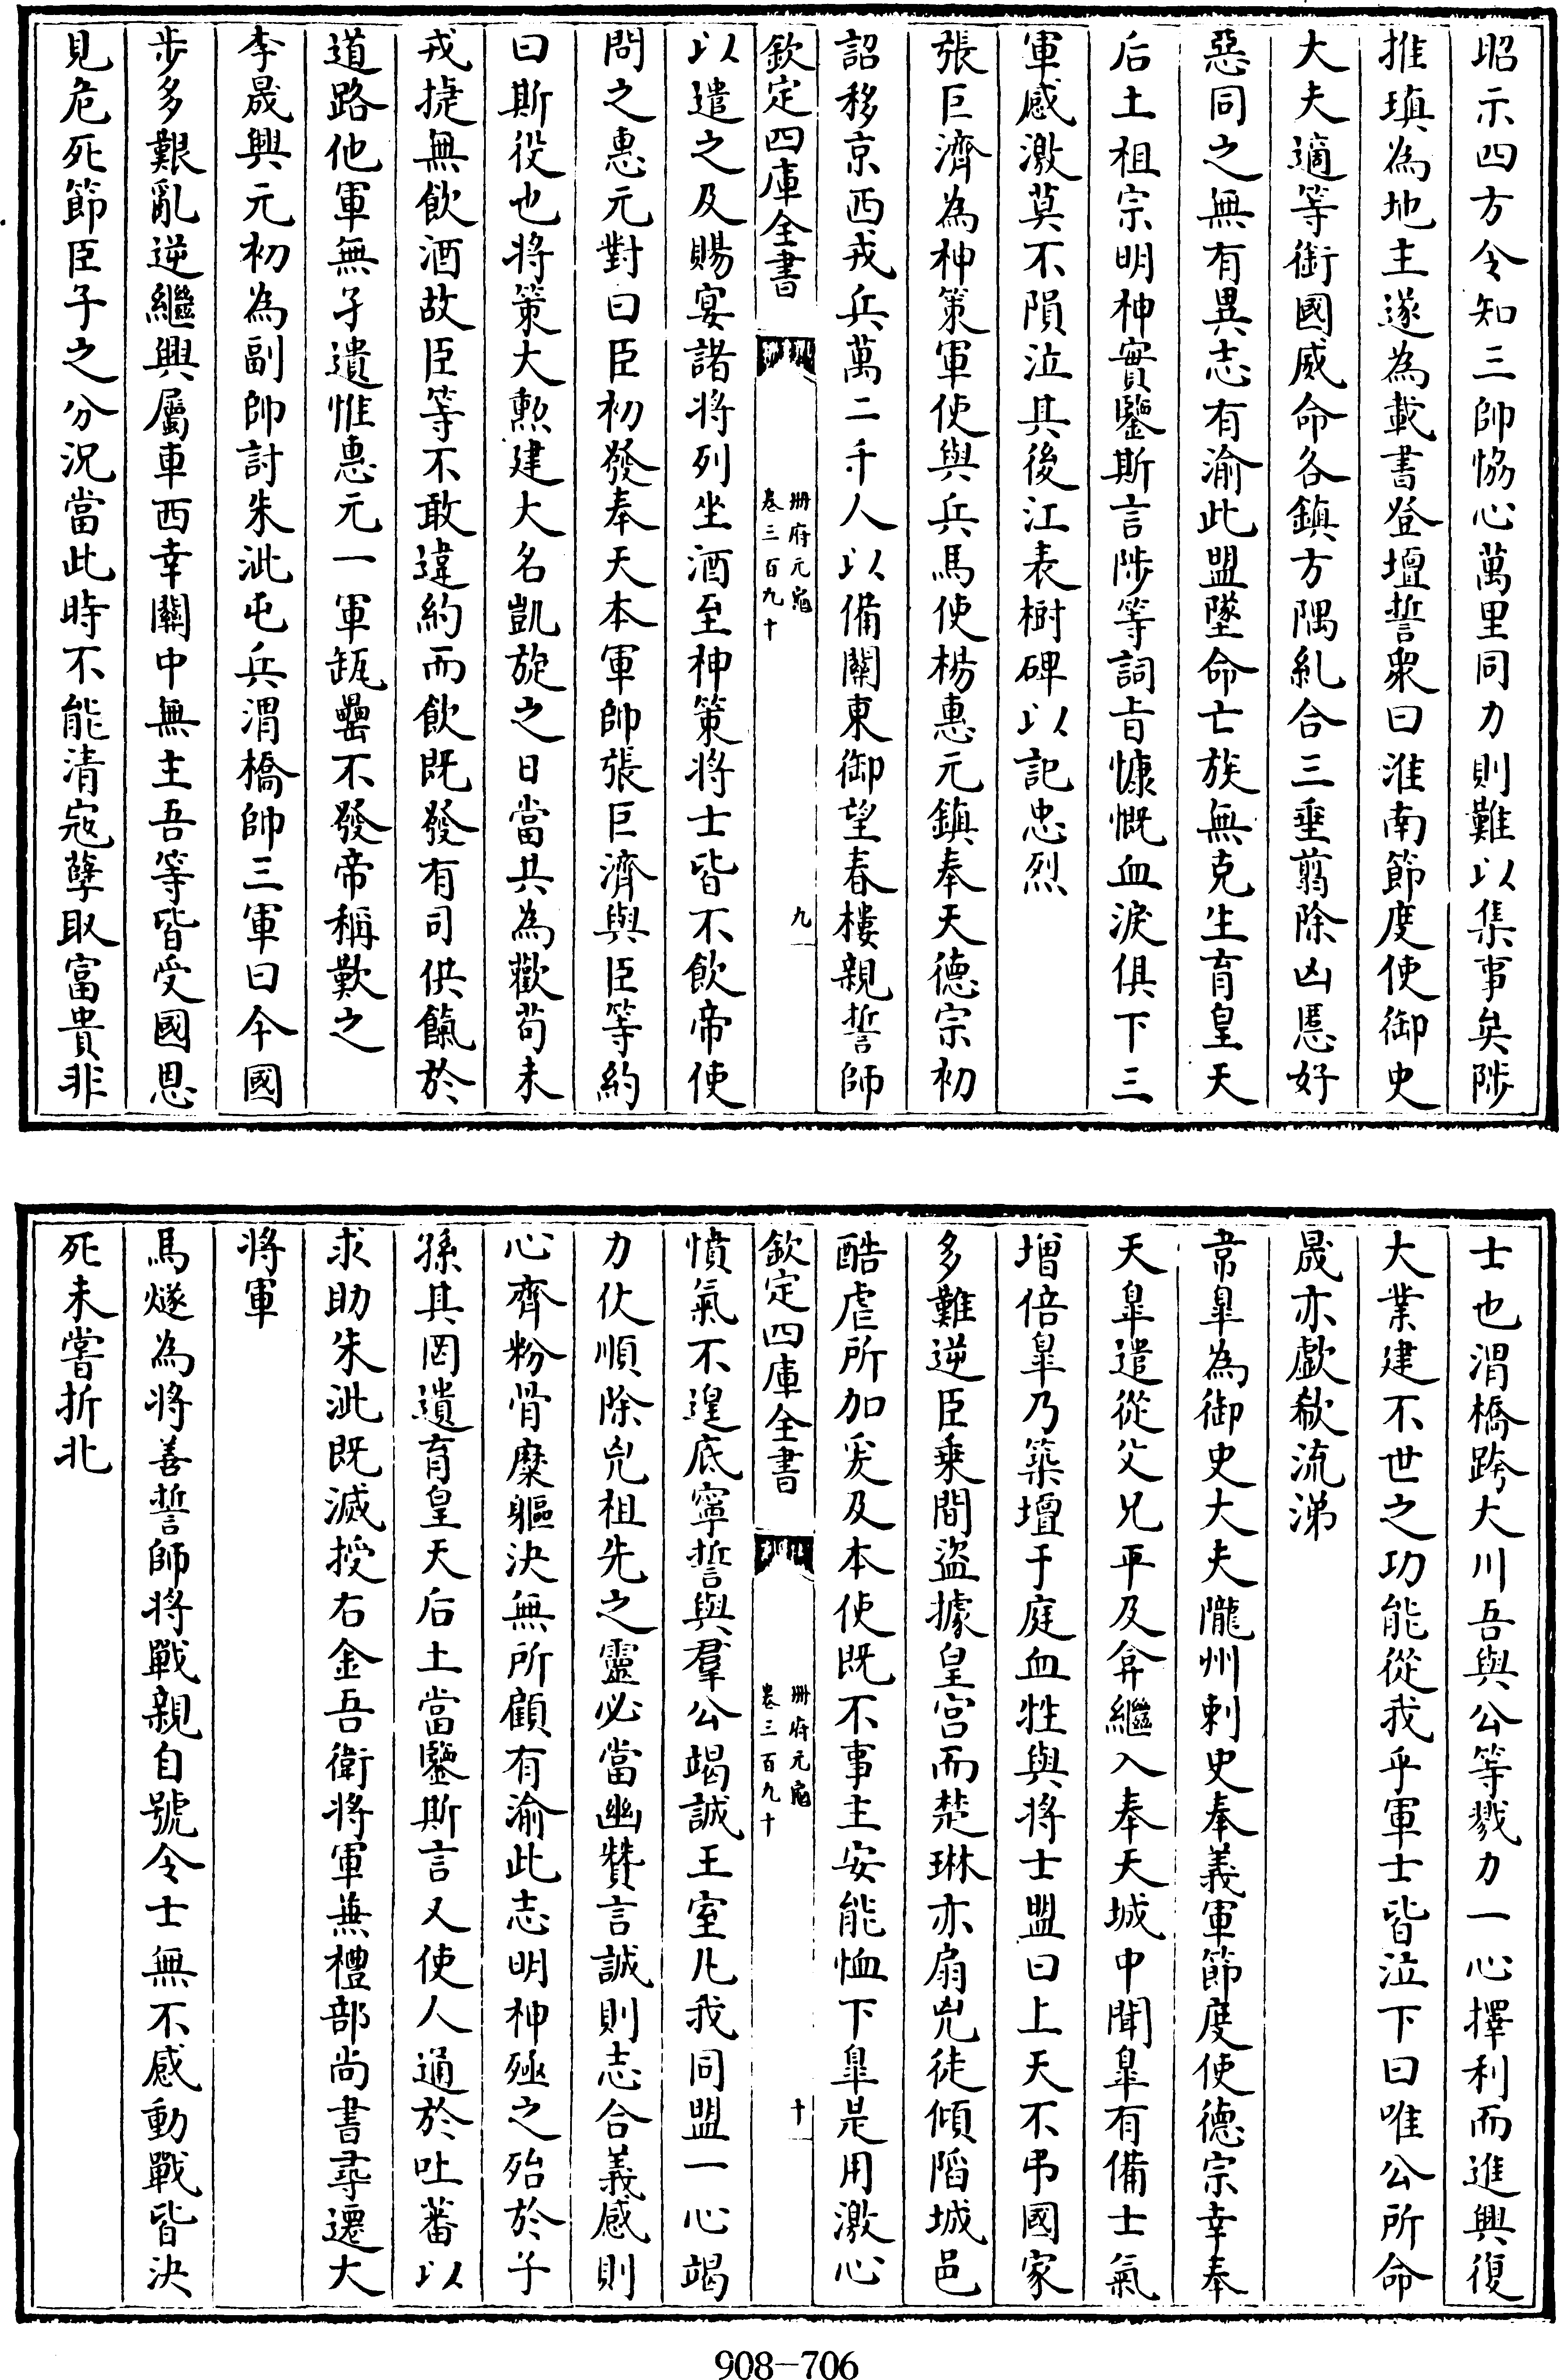 昭示四方令知三帥恊心萬里同力則難以集事矣陟
推瑱為地主遂為載書登壇誓衆曰淮南節度使御史
大夫適等銜國威命各鎮方隅糺合三垂翦除凶慝好
惡同之無有異志有渝此盟墜命亡族無克生育皇天
后土祖宗明神實鑒斯言陟等詞㫖慷慨血淚俱下三
軍感激莫不隕泣其後江表樹碑以記忠烈
張巨濟為神策軍使與兵馬使楊惠元鎮奉天德宗初
詔移京西戎兵萬二千人以備關東御望春樓親誓師
欽定四庫全書
冊府元龜
卷三百九十
九
以遣之及賜宴諸將列坐酒至神策將士皆不飲帝使
問之惠元對曰臣初發奉天本軍帥張巨濟與臣等約
曰斯役也將策大勲建大名凱旋之日當共為歡茍未
戎捷無飲酒故臣等不敢違約而飲既發有司供餼於
道路他軍無孑遺惟惠元一軍缾罍不發帝稱歎之
李晟興元初為副帥討朱泚屯兵渭橋帥三軍曰今國
步多艱亂逆繼興屬車西幸關中無主吾等皆受國恩
見危死節臣子之分況當此時不能清宼孽取富貴非
士也渭橋跨大川吾與公等戮力一心擇利而進興復
大業建不世之功能從我乎軍士皆泣下曰唯公所命
晟亦歔欷流涕
韋臯為御史大夫隴州刺史奉義軍節度使德宗幸奉
天臯遣從父兄平及弇繼入奉天城中聞臯有備士氣
增倍臯乃築壇于庭血牲與將士盟曰上天不弔國家
多難逆臣乗間盜據皇宫而楚琳亦扇兇徒傾䧟城邑
酷虐所加爰及本使既不事主安能恤下臯是用激心
欽定四庫全書
冊府元龜
卷三百九十
十
憤氣不遑底寧誓與羣公竭誠王室凡我同盟一心竭
力仗順除兇祖先之靈必當幽贊言誠則志合義感則
心齊粉骨糜軀決無所顧有渝此志明神殛之殆於子
孫其罔遺育皇天后土當鑒斯言又使人通於吐蕃以
求助朱泚既滅授右金吾衛將軍兼禮部尚書尋遷大
將軍
馬燧為將善誓師將戰親自號令士無不感動戰皆決
死未嘗折北
908-706